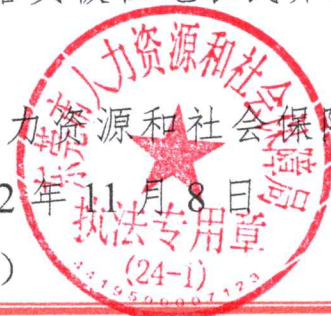 力资源和社会保障
2年11月8日
)
东莞市人力资源和社会保障局
执法专用章
(24-1)
4419500001123